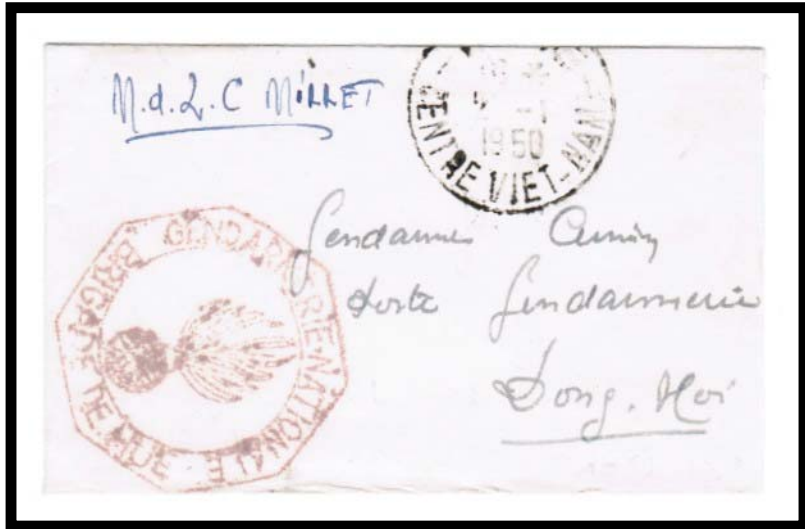 M.d.L.C MILLET
1950
CENTRE VIET-NAM
GENDARMERIE NATIONALE
BRIGADE DE HUE
Gendarme
Poste Gendarmerie
Dong. Hoi